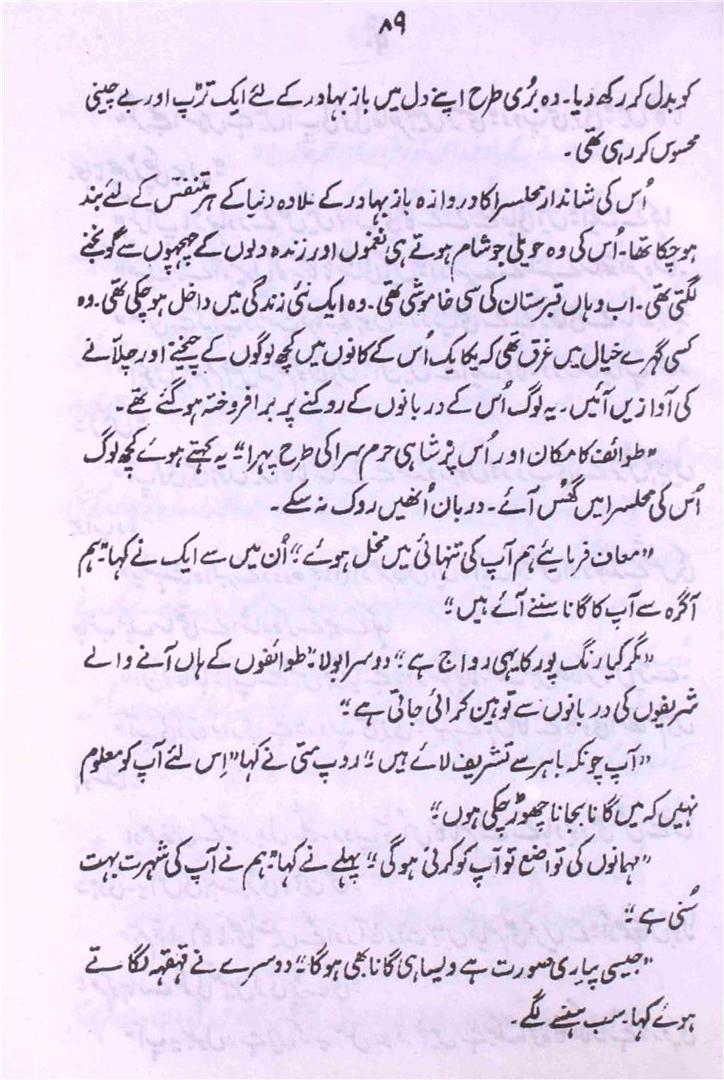 ۸۹
کر بدل کر رکھ دیا۔ وہ بُری طرح اپنے دل میں باز بہادر کے لئے ایک تڑپ اور بے چینی
محسوس کر رہی تھی۔
اُس کی شاندار مجلسرا کا دروازہ باز بہادر کے علاوہ دنیا کے ہر متنفس کے لئے بند
ہو چکا تھا۔ اُس کی وہ حویلی جو شام ہوتے ہی نغموں اور زندہ دلوں کے چہچہوں سے گونجنے
لگتی تھی۔ اب وہاں قبرستان کی سی خاموشی تھی۔ وہ ایک نئی زندگی میں داخل ہو چکی تھی۔ وہ
کسی گہرے خیال میں غرق تھی کہ یکایک اُس کے کانوں میں کچھ لوگوں کے چیخنے اور چلاّنے
کی آوازیں آئیں۔ یہ لوگ اُس کے دربانوں کے روکنے پر برافروختہ ہو گئے تھے۔
”طوائف کا مکان اور اُس پر شاہی حرم سرا کی طرح پہرا“ یہ کہتے ہوئے کچھ لوگ
اُس کی مجلسرا میں گھُس آئے۔ دربان اُنھیں روک نہ سکے۔
”معاف فرمایئے ہم آپ کی تنہائی میں مخل ہوئے“ اُن میں سے ایک نے کہا ”ہم
آگرہ سے آپ کا گانا سننے آئے ہیں“
”مگر کیا رنگ پور کا یہی رواج ہے“ دوسرا بولا ”طوائفوں کے ہاں آنے والے
شریفوں کی دربانوں سے توہین کرائی جاتی ہے“
”آپ چونکہ باہر سے تشریف لائے ہیں“ روپ متی نے کہا ”اِس لئے آپ کو معلوم
نہیں کہ میں گانا بجانا چھوڑ چکی ہوں“
”مہمانوں کی تواضع تو آپ کو کرنی ہوگی“ پہلے نے کہا ”ہم نے آپ کی شہرت بہت
سُنی ہے“
”جیسی پیاری صورت ہے ویسا ہی گانا بھی ہوگا“ دوسرے نے قہقہہ لگاتے
ہوئے کہا۔ سب ہنسنے لگے۔